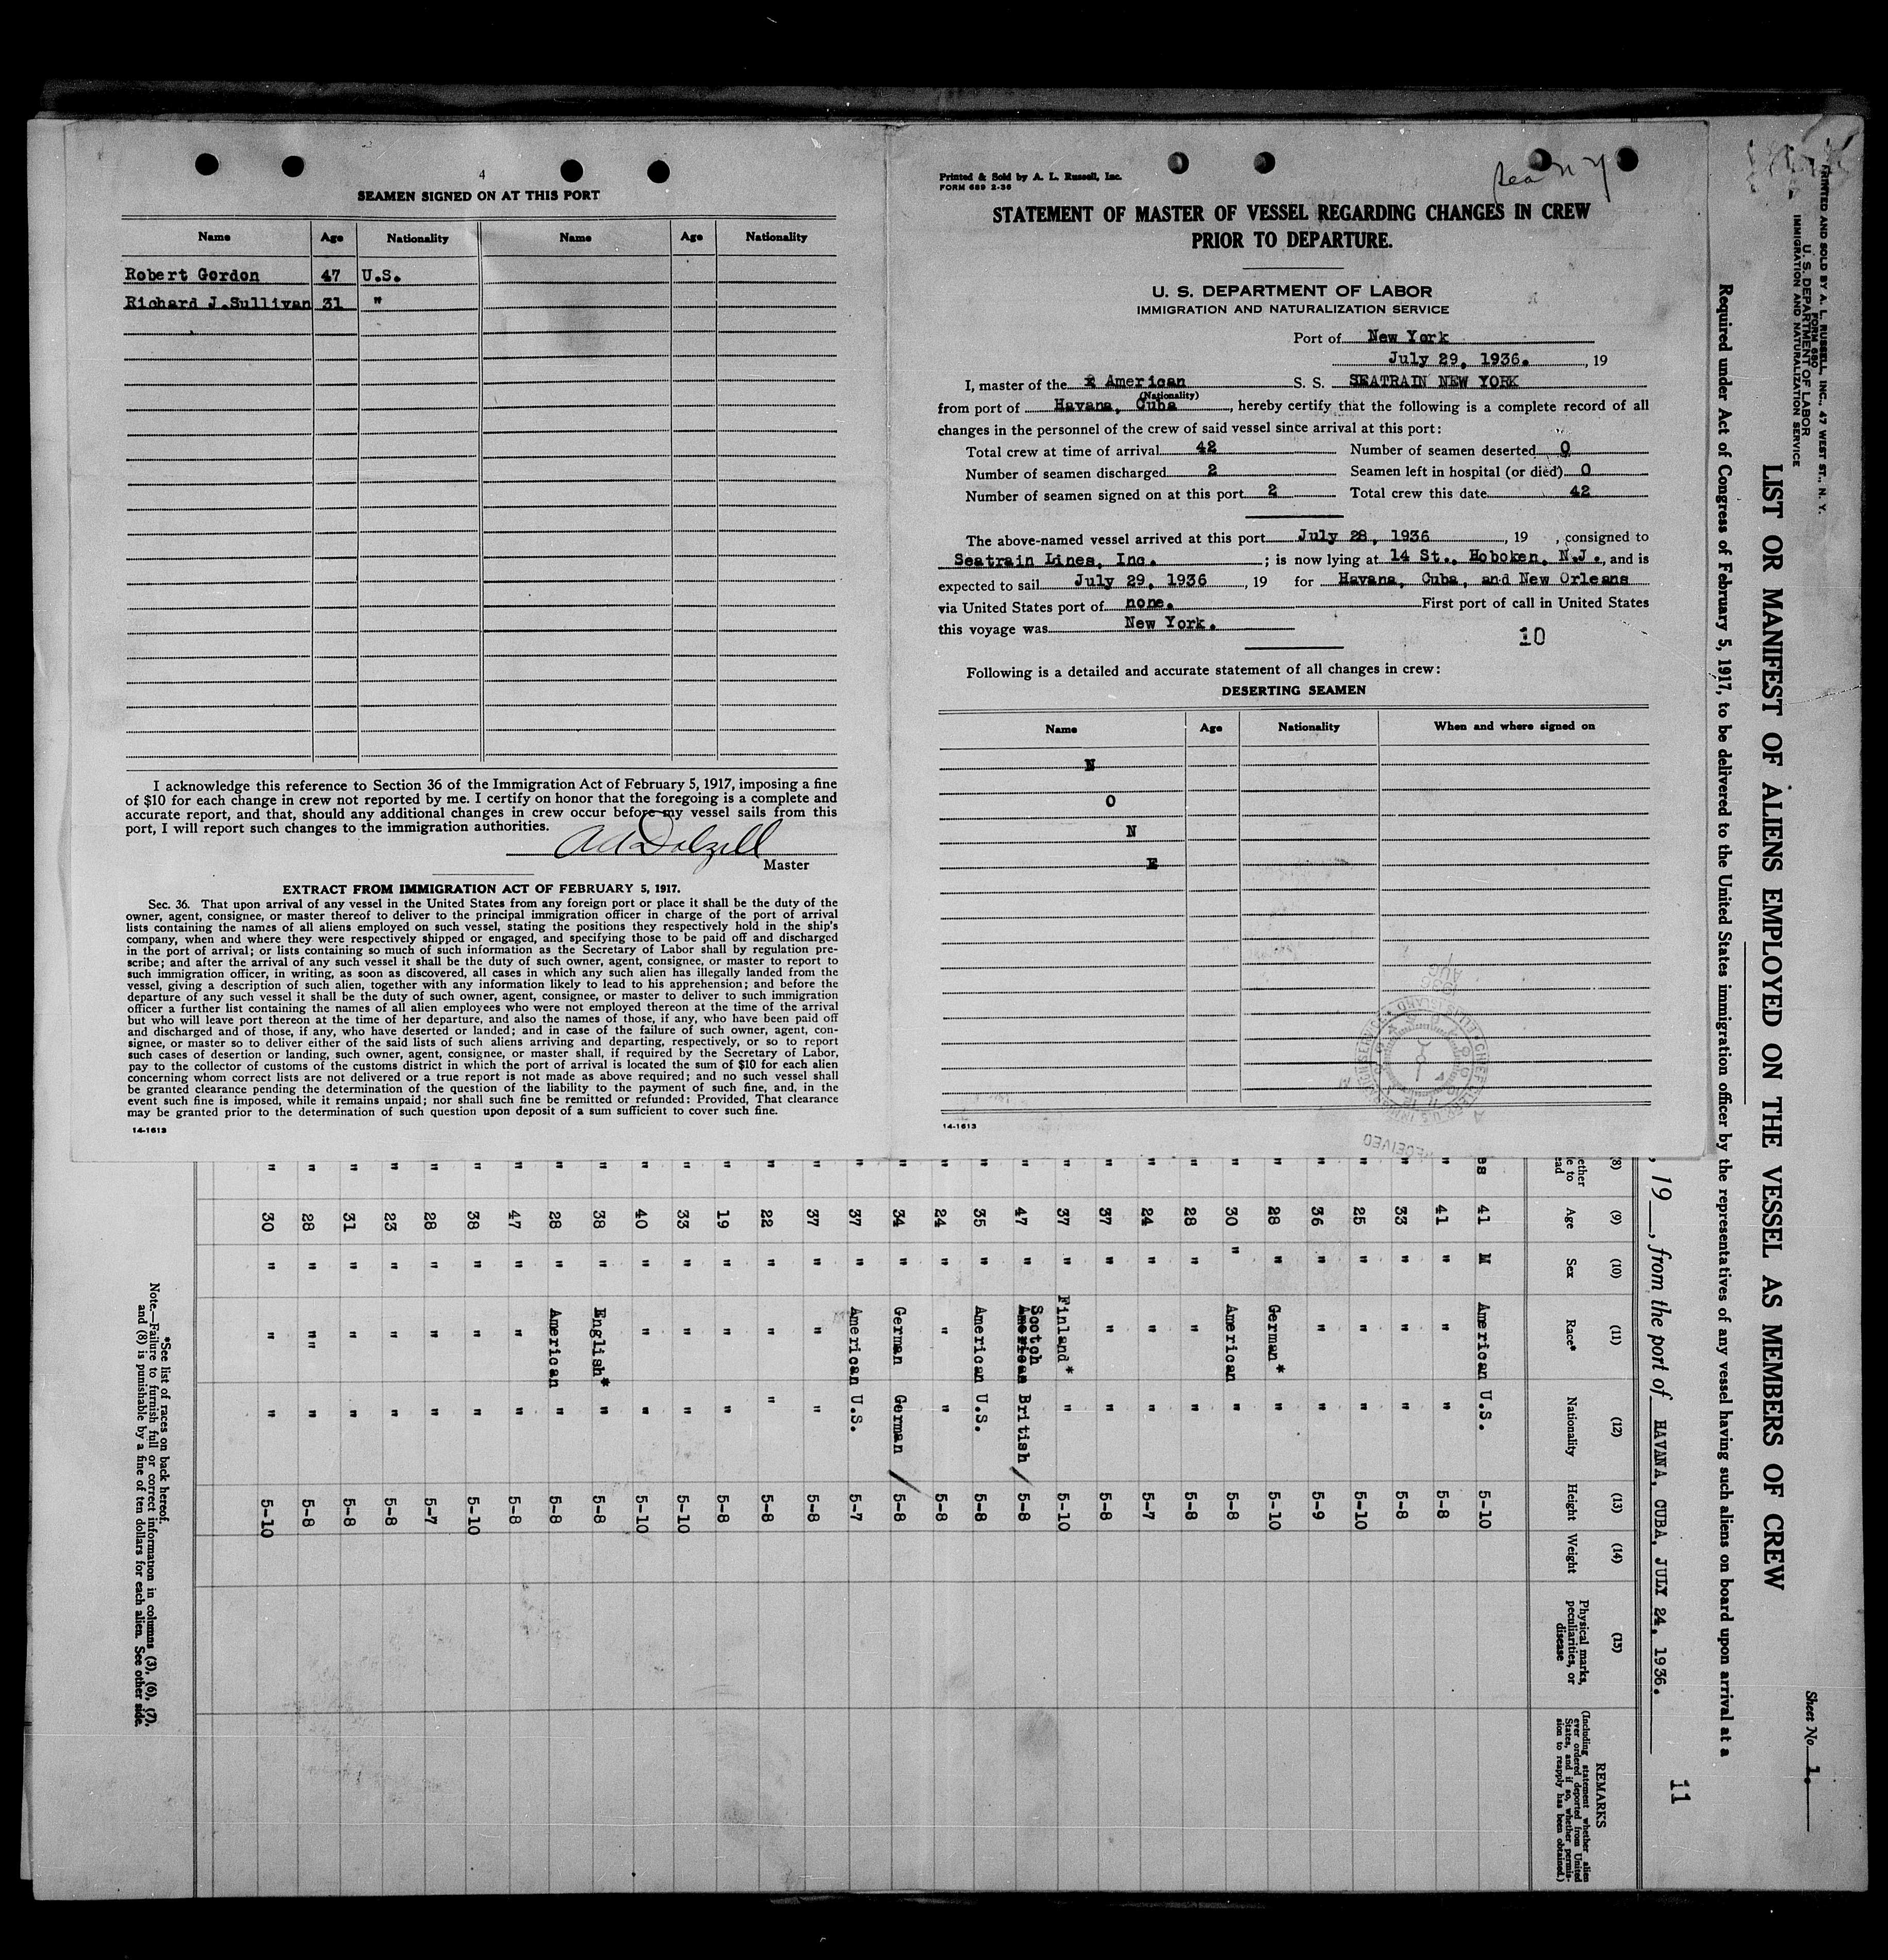 4
SEAMEN SIGNED ON AT THIS PORT
Name Age Nationality Name Age Nationality
Robert Gordon 47 U.S.
Richard J.Sullivan 31 "
I acknowledge this reference to Section 36 of the Immigration Act of February 5, 1917, imposing a fine
of $10 for each change in crew not reported by me. I certify on honor that the foregoing is a complete and
accurate report, and that, should any additional changes in crew occur before my vessel sails from this
port, I will report such changes to the immigration authorities.
Dalzell
Master
EXTRACT FROM IMMIGRATION ACT OF FEBRUARY 5, 1917.
Sec. 36. That upon arrival of any vessel in the United States from any foreign port or place it shall be the duty of the
owner, agent, consignee, or master thereof to deliver to the principal immigration officer in charge of the port of arrival
lists containing the names of all aliens employed on such vessel, stating the positions they respectively hold in the ship's
company, when and where they were respectively shipped or engaged, and specifying those to be paid off and discharged
in the port of arrival; or lists containing so much of such information as the Secretary of Labor shall by regulation pre-
scribe; and after the arrival of any such vessel it shall be the duty of such owner, agent, consignee, or master to report to
such immigration officer, in writing, as soon as discovered, all cases in which any such alien has illegally landed from the
vessel, giving a description of such alien, together with any information likely to lead to his apprehension; and before the
departure of any such vessel it shall be the duty of such owner, agent, consignee, or master to deliver to such immigration
officer a further list containing the names of all alien employees who were not employed thereon at the time of the arrival
but who will leave port thereon at the time of her departure, and also the names of those, if any, who have been paid off
and discharged and of those, if any, who have deserted or landed; and in case of the failure of such owner, agent, con-
signee, or master so to deliver either of the said lists of such aliens arriving and departing, respectively, or so to report
such cases of desertion or landing, such owner, agent, consignee, or master shall, if required by the Secretary of Labor,
pay to the collector of customs of the customs district in which the port of arrival is located the sum of $10 for each alien
concerning whom correct lists are not delivered or a true report is not made as above required; and no such vessel shall
be granted clearance pending the determination of the question of the liability to the payment of such fine, and, in the
event such fine is imposed, while it remains unpaid; nor shall such fine be remitted or refunded: Provided, That clearance
may be granted prior to the determination of such question upon deposit of a sum sufficient to cover such fine.
14-1613
Printed & Sold by A. L. Russell, Inc.
FORM 689 2-36
Sea N Y
STATEMENT OF MASTER OF VESSEL REGARDING CHANGES IN CREW
PRIOR TO DEPARTURE.
U. S. DEPARTMENT OF LABOR
IMMIGRATION AND NATURALIZATION SERVICE
Port of New York
July 29, 1936. , 19
I, master of the American S. S. SEATRAIN NEW YORK
(Nationality)
from port of Havana, Cuba , hereby certify that the following is a complete record of all
changes in the personnel of the crew of said vessel since arrival at this port:
Total crew at time of arrival 42 Number of seamen deserted 0
Number of seamen discharged 2 Seamen left in hospital (or died) 0
Number of seamen signed on at this port 2 Total crew this date 42
The above-named vessel arrived at this port July 28, 1936 , 19 , consigned to
Seatrain Lines, Inc. ; is now lying at 14 St., Hoboken, N.J., and is
expected to sail July 29, 1936 , 19 for Havana, Cuba, and New Orleans
via United States port of none. First port of call in United States
this voyage was New York.
10
Following is a detailed and accurate statement of all changes in crew:
DESERTING SEAMEN
Name Age Nationality When and where signed on
N
O
N
E
1936 AUG
RECEIVED
14-1613
PRINTED AND SOLD BY A. L. RUSSELL, INC., 47 WEST ST., N. Y.
FORM 680
U. S. DEPARTMENT OF LABOR
IMMIGRATION AND NATURALIZATION SERVICE
Sheet No. 1.
LIST OR MANIFEST OF ALIENS EMPLOYED ON THE VESSEL AS MEMBERS OF CREW
Required under Act of Congress of February 5, 1917, to be delivered to the United States immigration officer by the representatives of any vessel having such aliens on board upon arrival at a
11
, 19 , from the port of HAVANA, CUBA, JULY 24, 1936.
(8) (9) (10) (11) (12) (13) (14) (15)
ether
e to
ead Age Sex Race* Nationality Height Weight Physical marks, peculiarities, or disease
REMARKS
(Including statement whether alien
ever ordered deported from United
States, and if so, whether permis-
sion to reapply has been obtained.)
es 41 M American U.S. 5-10
" 41 " " " 5-8
" 33 " " " 5-8
" 25 " " " 5-10
" 36 " " " 5-9
" 28 " German* " 5-10
" 30 " American " 5-8
" 28 " " " 5-8
" 24 " " " 5-7
" 37 " " " 5-8
" 37 " Finland* " 5-10
" 47 " Scotch American British / 5-8
" 35 " American U.S. 5-8
" 24 " " " 5-8
" 34 " German German / 5-8
" 37 " American U.S. 5-7
" 37 " " " 5-8
" 22 " " " 5-8
" 19 " " " 5-8
" 33 " " " 5-10
" 40 " " " 5-10
" 38 " English* " 5-8
" 28 " American " 5-8
" 47 " " " 5-8
" 38 " " " 5-10
" 28 " " " 5-7
" 23 " " " 5-8
" 31 " " " 5-8
" 28 " "" " 5-8
" 30 " " " 5-10
*See list of races on back hereof.
Note.—Failure to furnish full or correct information in columns (3), (6), (7),
and (8) is punishable by a fine of ten dollars for each alien. See other side.